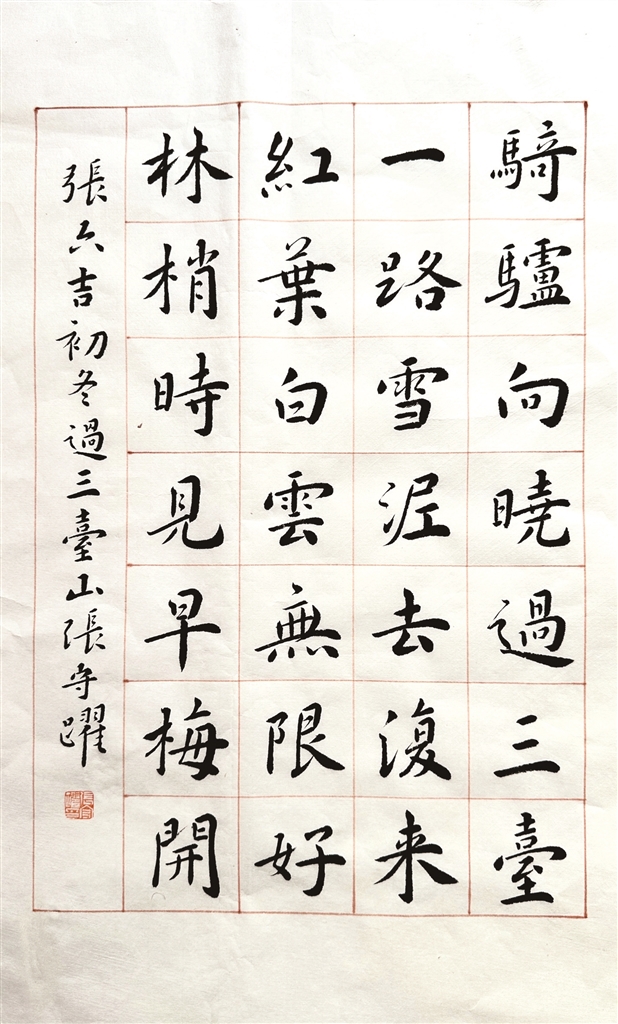 騎驢向曉過三臺
一路雪泥去復来
紅葉白雲無限好
林梢時見早梅開
張六吉初冬過三臺山張守躍